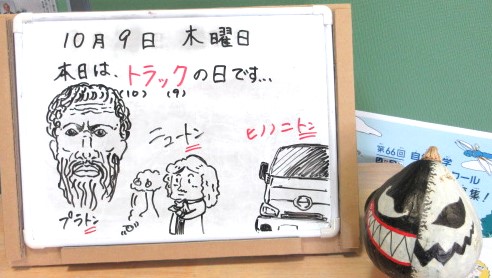 10月9日 木曜日
本日は、トラックの日です...
(10) (9)
ニュートン
ヒノノニトン
プラトン
第66回 自
学
コール
集!